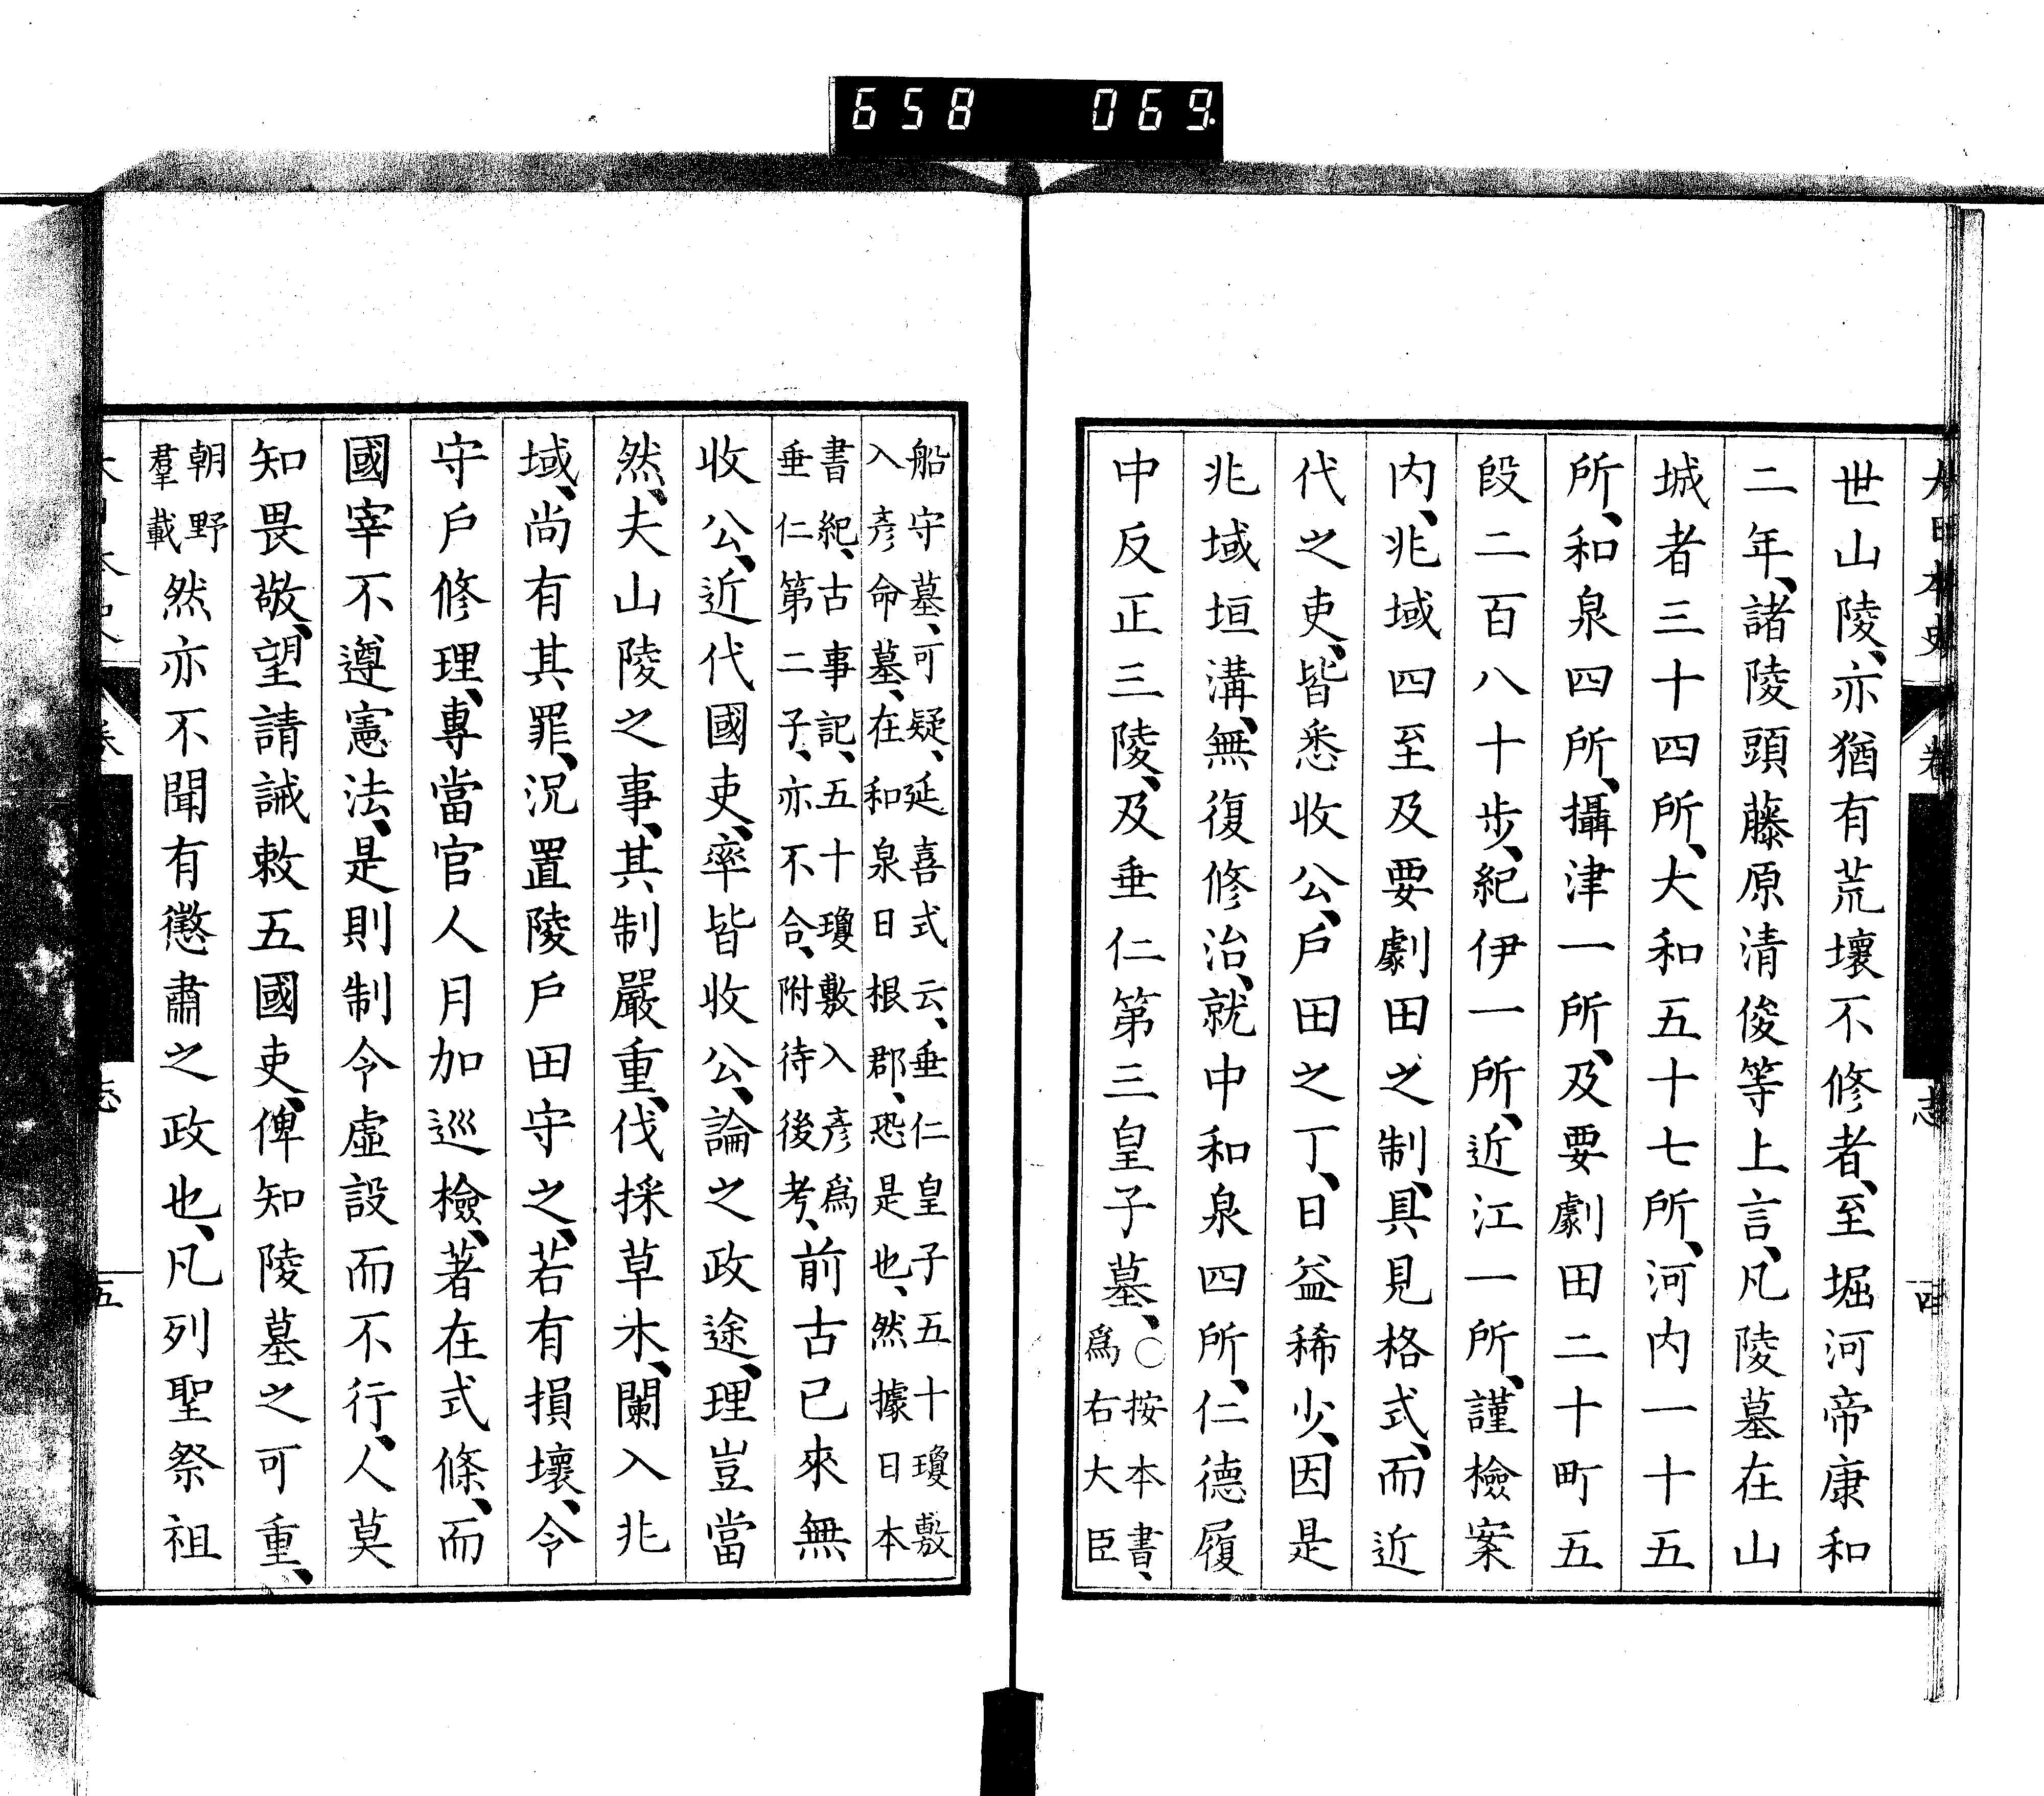 658 069
大日本史 卷 志 四
世山陵、亦猶有荒壞不修者、至堀河帝康和
二年、諸陵頭藤原清俊等上言、凡陵墓在山
城者三十四所、大和五十七所、河内一十五
所、和泉四所、攝津一所、及要劇田二十町五
段二百八十步、紀伊一所、近江一所、謹檢案
内、兆域四至及要劇田之制、具見格式、而近
代之吏、皆悉收公、戶田之丁、日益稀少、因是
兆域垣溝、無復修治、就中和泉四所、仁德履
中反正三陵、及垂仁第三皇子墓、○按本書、
爲右大臣
船守墓、可疑、延喜式云、垂仁皇子五十瓊敷
入彥命墓、在和泉日根郡、恐是也、然據日本
書紀、古事記、五十瓊敷入彥爲
垂仁第二子、亦不合、附待後考、前古已來無
收公、近代國吏、率皆收公、論之政途、理豈當
然、夫山陵之事、其制嚴重、伐採草木、闌入兆
域、尚有其罪、況置陵戶田守之、若有損壞、令
守戶修理、專當官人月加巡檢、著在式條、而
國宰不遵憲法、是則制令虛設而不行、人莫
知畏敬、望請誡敕五國吏、俾知陵墓之可重、
朝野
羣載然亦不聞有懲肅之政也、凡列聖祭祖
志 五